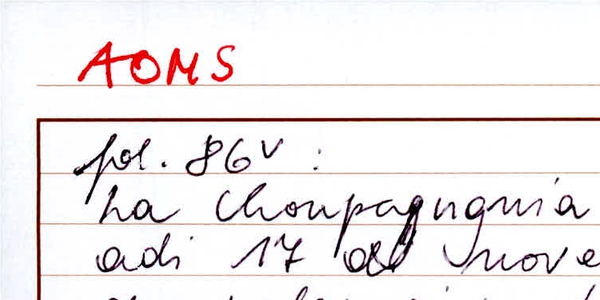 AOMS
fol. 86v :
La Choupagnania
adi 17 del nove